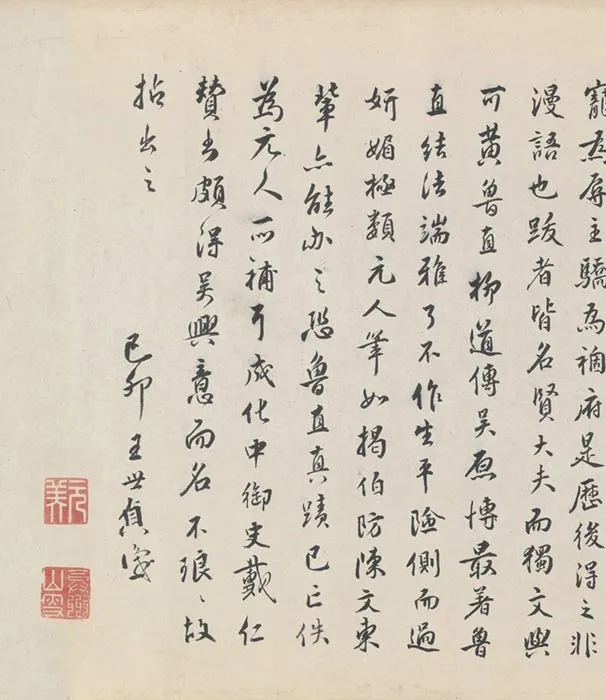 寵為辱主驕為禍府是歷後得之非
漫語也跋者皆名賢大夫而獨文與
可黃魯直柳道傳吳原博最著魯
直結法端雅了不作生平險側而過
妍媚極類元人筆如揭伯防陳文東
輩亦能办之恐魯直真蹟已亡佚
為元人所補耳成化中御史戴仁
贊書頗得吳興意而名不琅〻故
拈出之
己卯王世貞識
元美